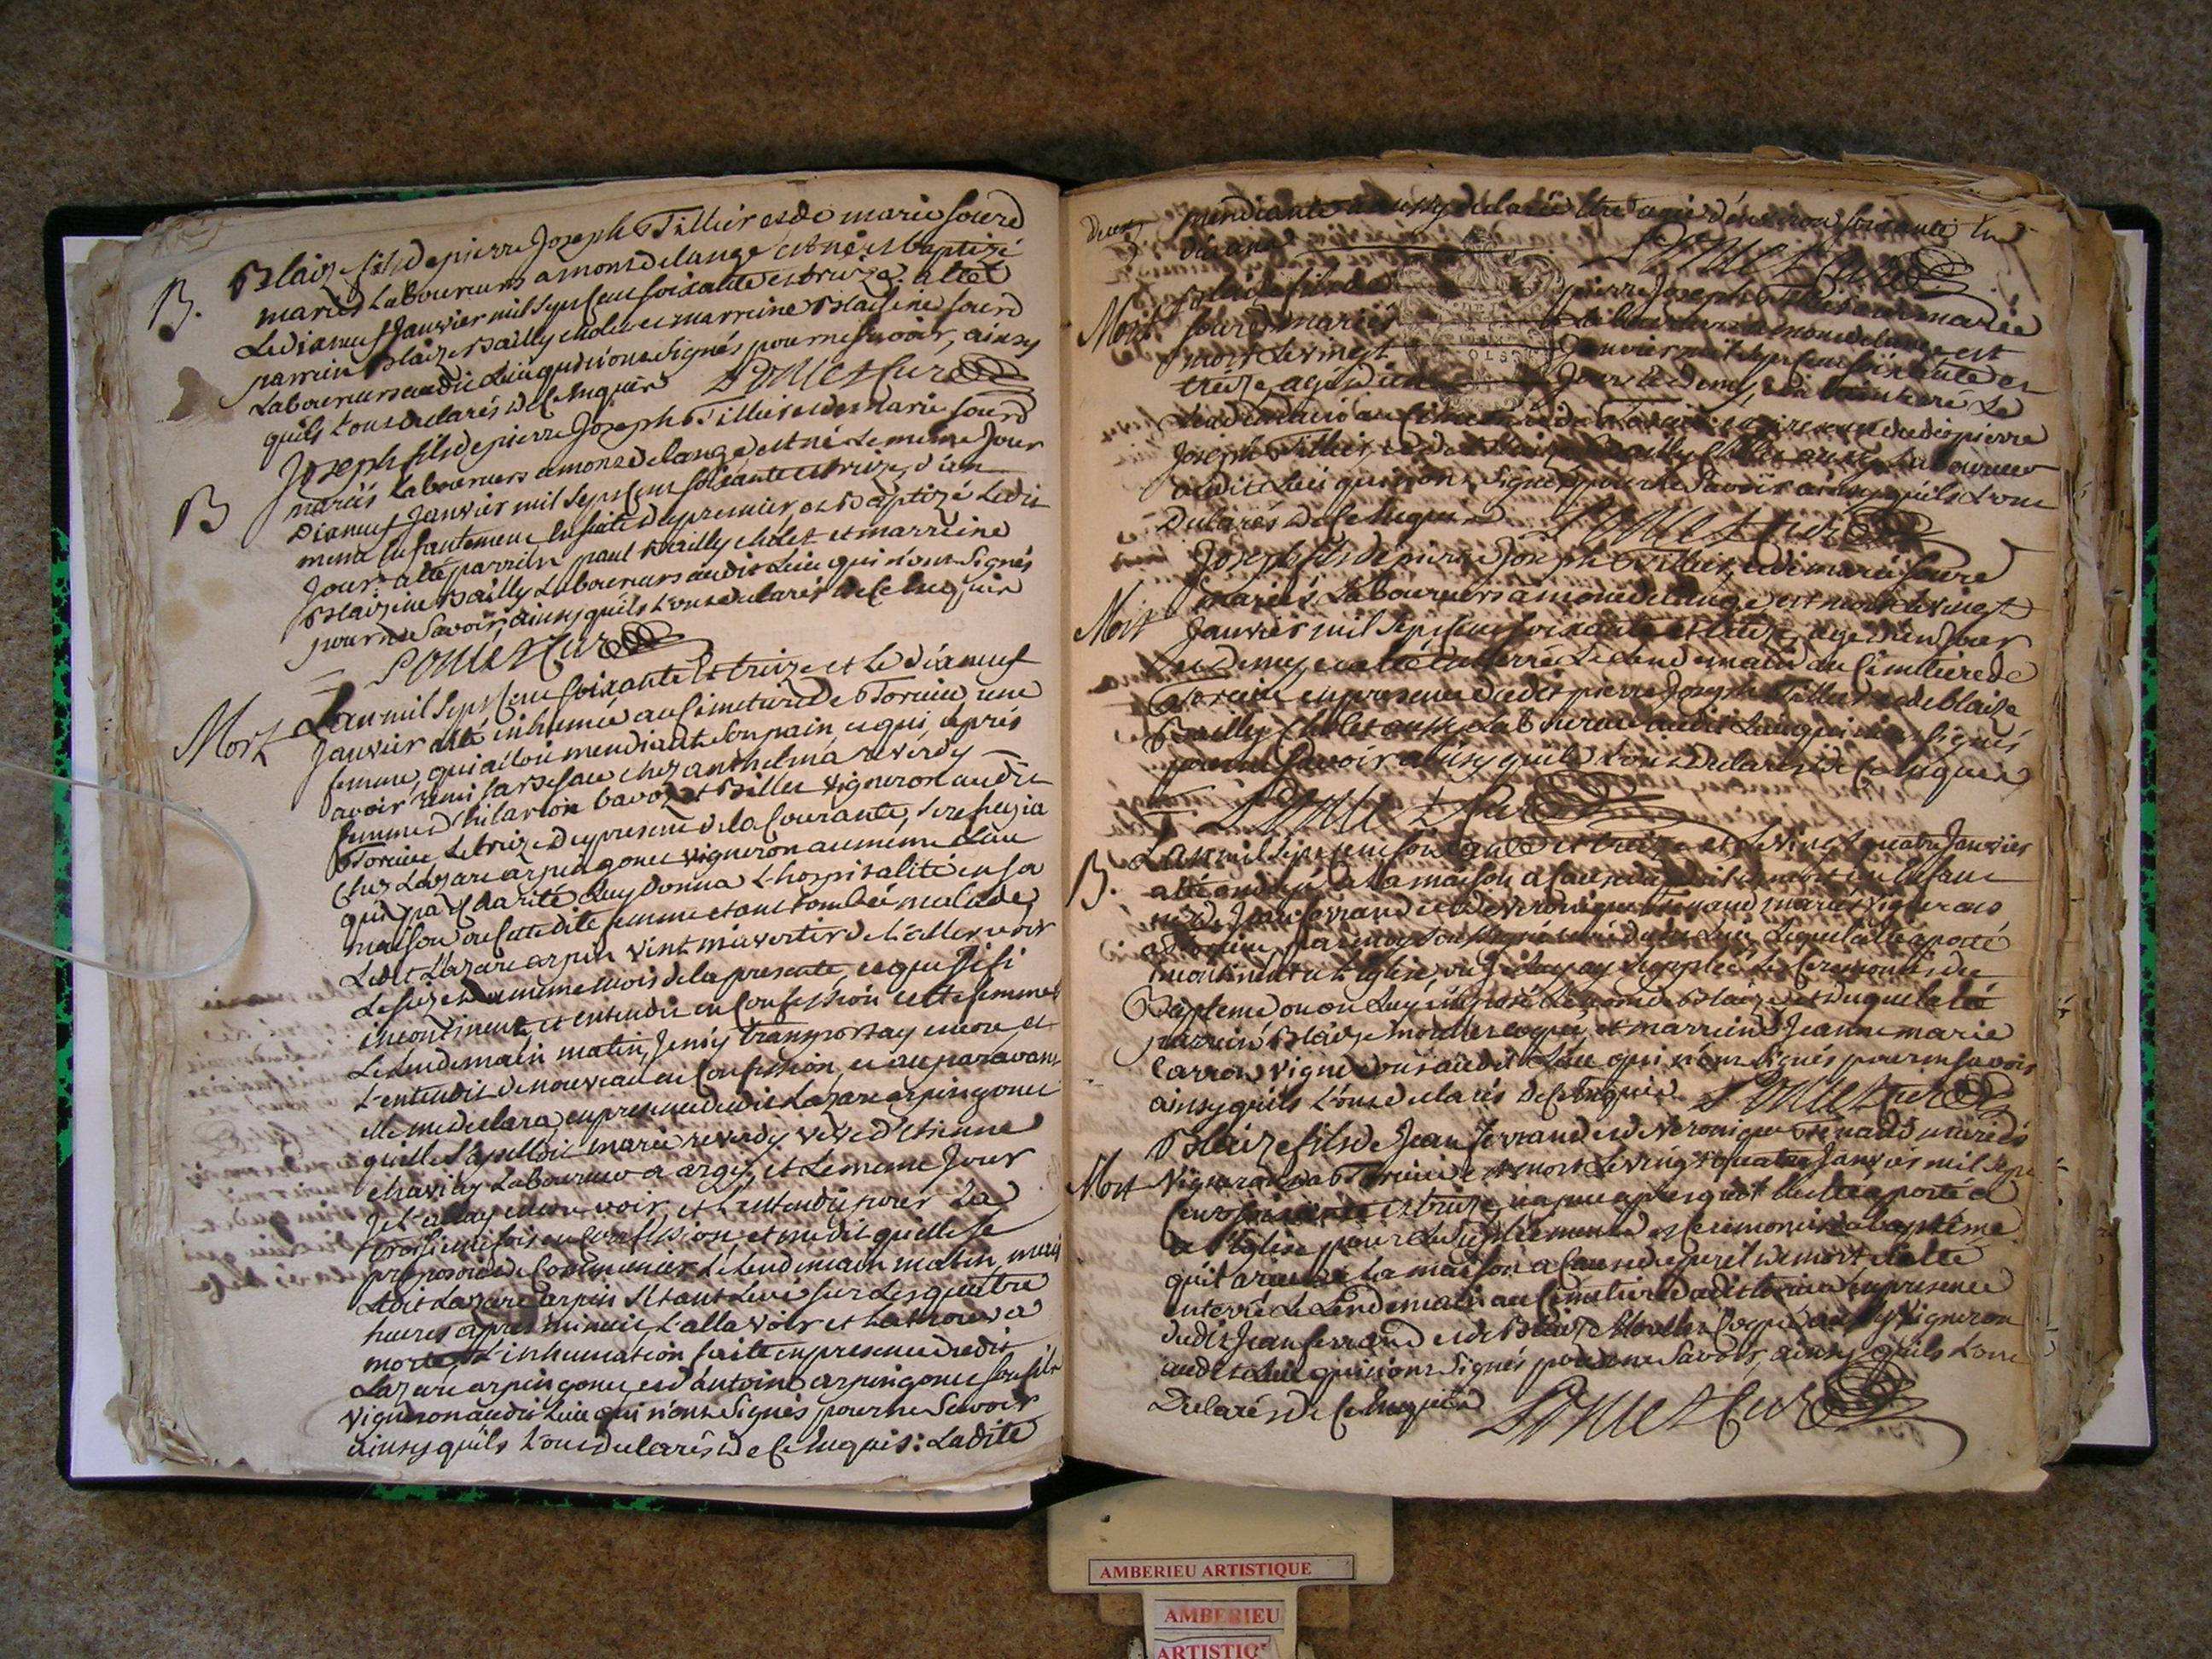 B. Blaize fils de pierre Joseph Tillier et de marie sourd
mariés Laboureurs a mont de lange est né et baptizé
Le dixneuf Janvier mil sept Cent soixante et treize. a été
parrein Blaize Bailly et marreine Blaisine sourd
Laboureurs audit Lieu qui n'ont signés pour ne savoir, ainsy
quils l'ont declarés de ce enquis Curé
B Joseph fils de pierre Joseph Tillier et de marie sourd
mariés Laboureurs a mont de lange est né Le meme Jour
Dixneuf Janvier mil sept Cent soixante et treize, d'un
meme enfantement ensuite du premier, et baptizé Ledit
Jour: a été parrein paul Bailly et marreine
Blaizine Bailly Laboureurs audit Lieu qui n'ont signés
pour ne savoir, ainsy quils l'ont declarés de ce enquis
Curé
Mort L'an mil sept Cent soixante et treize et le dixneuf
Janvier a été inhumée au Cimetiere de Torcieu une
femme, qui alloit mendiant son pain, et qui après
avoir remi sa besace chez anthelma reverdy
femme d'hilarion bavoz et Billet vigneron audit
Torcieu Le treize du present de la Courante, se refugia
Chez Lazare arpin gonet vigneron au meme Lieu
qui par Charité Luy donna L'hospitalité en sa
maison ou Cette dite femme etant tombée malade
Ledit Lazare arpin vint m'avertir de L'aller voir
Le seize du meme mois de la presente, ce que Je fis
incontinent et entendis en Confession cette femme
Le Lendemain matin, Je m'y transportay encore et
L'entendis de nouveau en Confession, et auparavant
elle me declara, en presence dudit Lazare arpin gonet
quelle s'apelloit marie reverdy veuve d'Etienne
chavin Laboureur a argis, et Le meme Jour
Je L'allay encore voir, et L'entendis pour La
troisieme fois en Confession, et me dit quelle se
proposoit de Communier Le Lendemain matin, mais
Ledit Lazare arpin s'etant Levé sur Les quattre
heures apres minuit, L'alla voir et La trouva
morte, L'inhumation faite en presence dudit
Lazare arpin gonet, et d'antoine arpin gonet son fils
vigneron audit Lieu qui n'ont signés pour ne savoir
ainsy quils l'ont declarés de ce enquis: Ladite
mendiante a aussy declarée être agée d'environ soixante et
dix ans Curé
Mort Blaize fils de pierre Joseph Tillier et de marie
sourd mariés Laboureurs a mont de lange est
mort Le vingt Janvier mil sept Cent soixante et
treize, agé d'un Jour et demy, et a été enterré Le
Lendemain au Cimetiere de Torcieu en presence dudit pierre
Joseph Tillier, et de Blaize Bailly aussy Laboureur
audit Lieu qui n'ont signés pour ne savoir ainsy quils l'ont
declarés de ce enquis Curé
Mort Joseph fils de pierre Joseph Tillier, et de marie sourd
mariés Laboureurs a mont de lange est mort Le vingt
Janvier mil sept Cent soixante et treize, agé d'un Jour
et demy, et a été enterré Le Lendemain au Cimetiere de
Torcieu en presence dudit pierre Joseph Tillier et de Blaize
Bailly aussy Laboureur audit Lieu qui n'ont signés
pour ne savoir ainsy quils l'ont declarés de ce enquis
Curé
B. L'an mil sept Cent soixante et treize et Le vingt quatre Janvier
a été a la maison a Cause du peril de mort un Enfant
né de Jean ferrand et de veronique mariés vignerons
a Torcieu par moy soussigné Curé dudit Lieu, Lequel a été aporté
incontinent a L'eglise, ou Je Luy ay supplée Les Ceremonies du
Bapteme ou on Luy a imposé Le nom de Blaize, et duquel a été
parrein Blaize et marreine Jeanne marie
Carron vignerons audit Lieu qui n'ont signés pour ne savoir
ainsy quils l'ont declarés de ce enquis Curé
Mort Blaize fils de Jean ferrand et de veronique mariés
vignerons a Torcieu est mort Le vingt quatre Janvier mil sept
Cent soixante et treize, un peu apres quil eut été aporté a
a L'eglise pour Le supléement des Ceremonies du baptême
qu'il a recu a La maison a Cause du peril de mort et a été
enterré Le Lendemain au Cimetiere dudit Torcieu en presence
dudit Jean ferrand et de Blaize aussy vigneron
audit Lieu qui n'ont signés pour ne savoir, ainsy quils l'ont
Declarés de ce enquis Curé
AMBERIEU ARTISTIQUE
AMBERIEU
ARTISTIQ